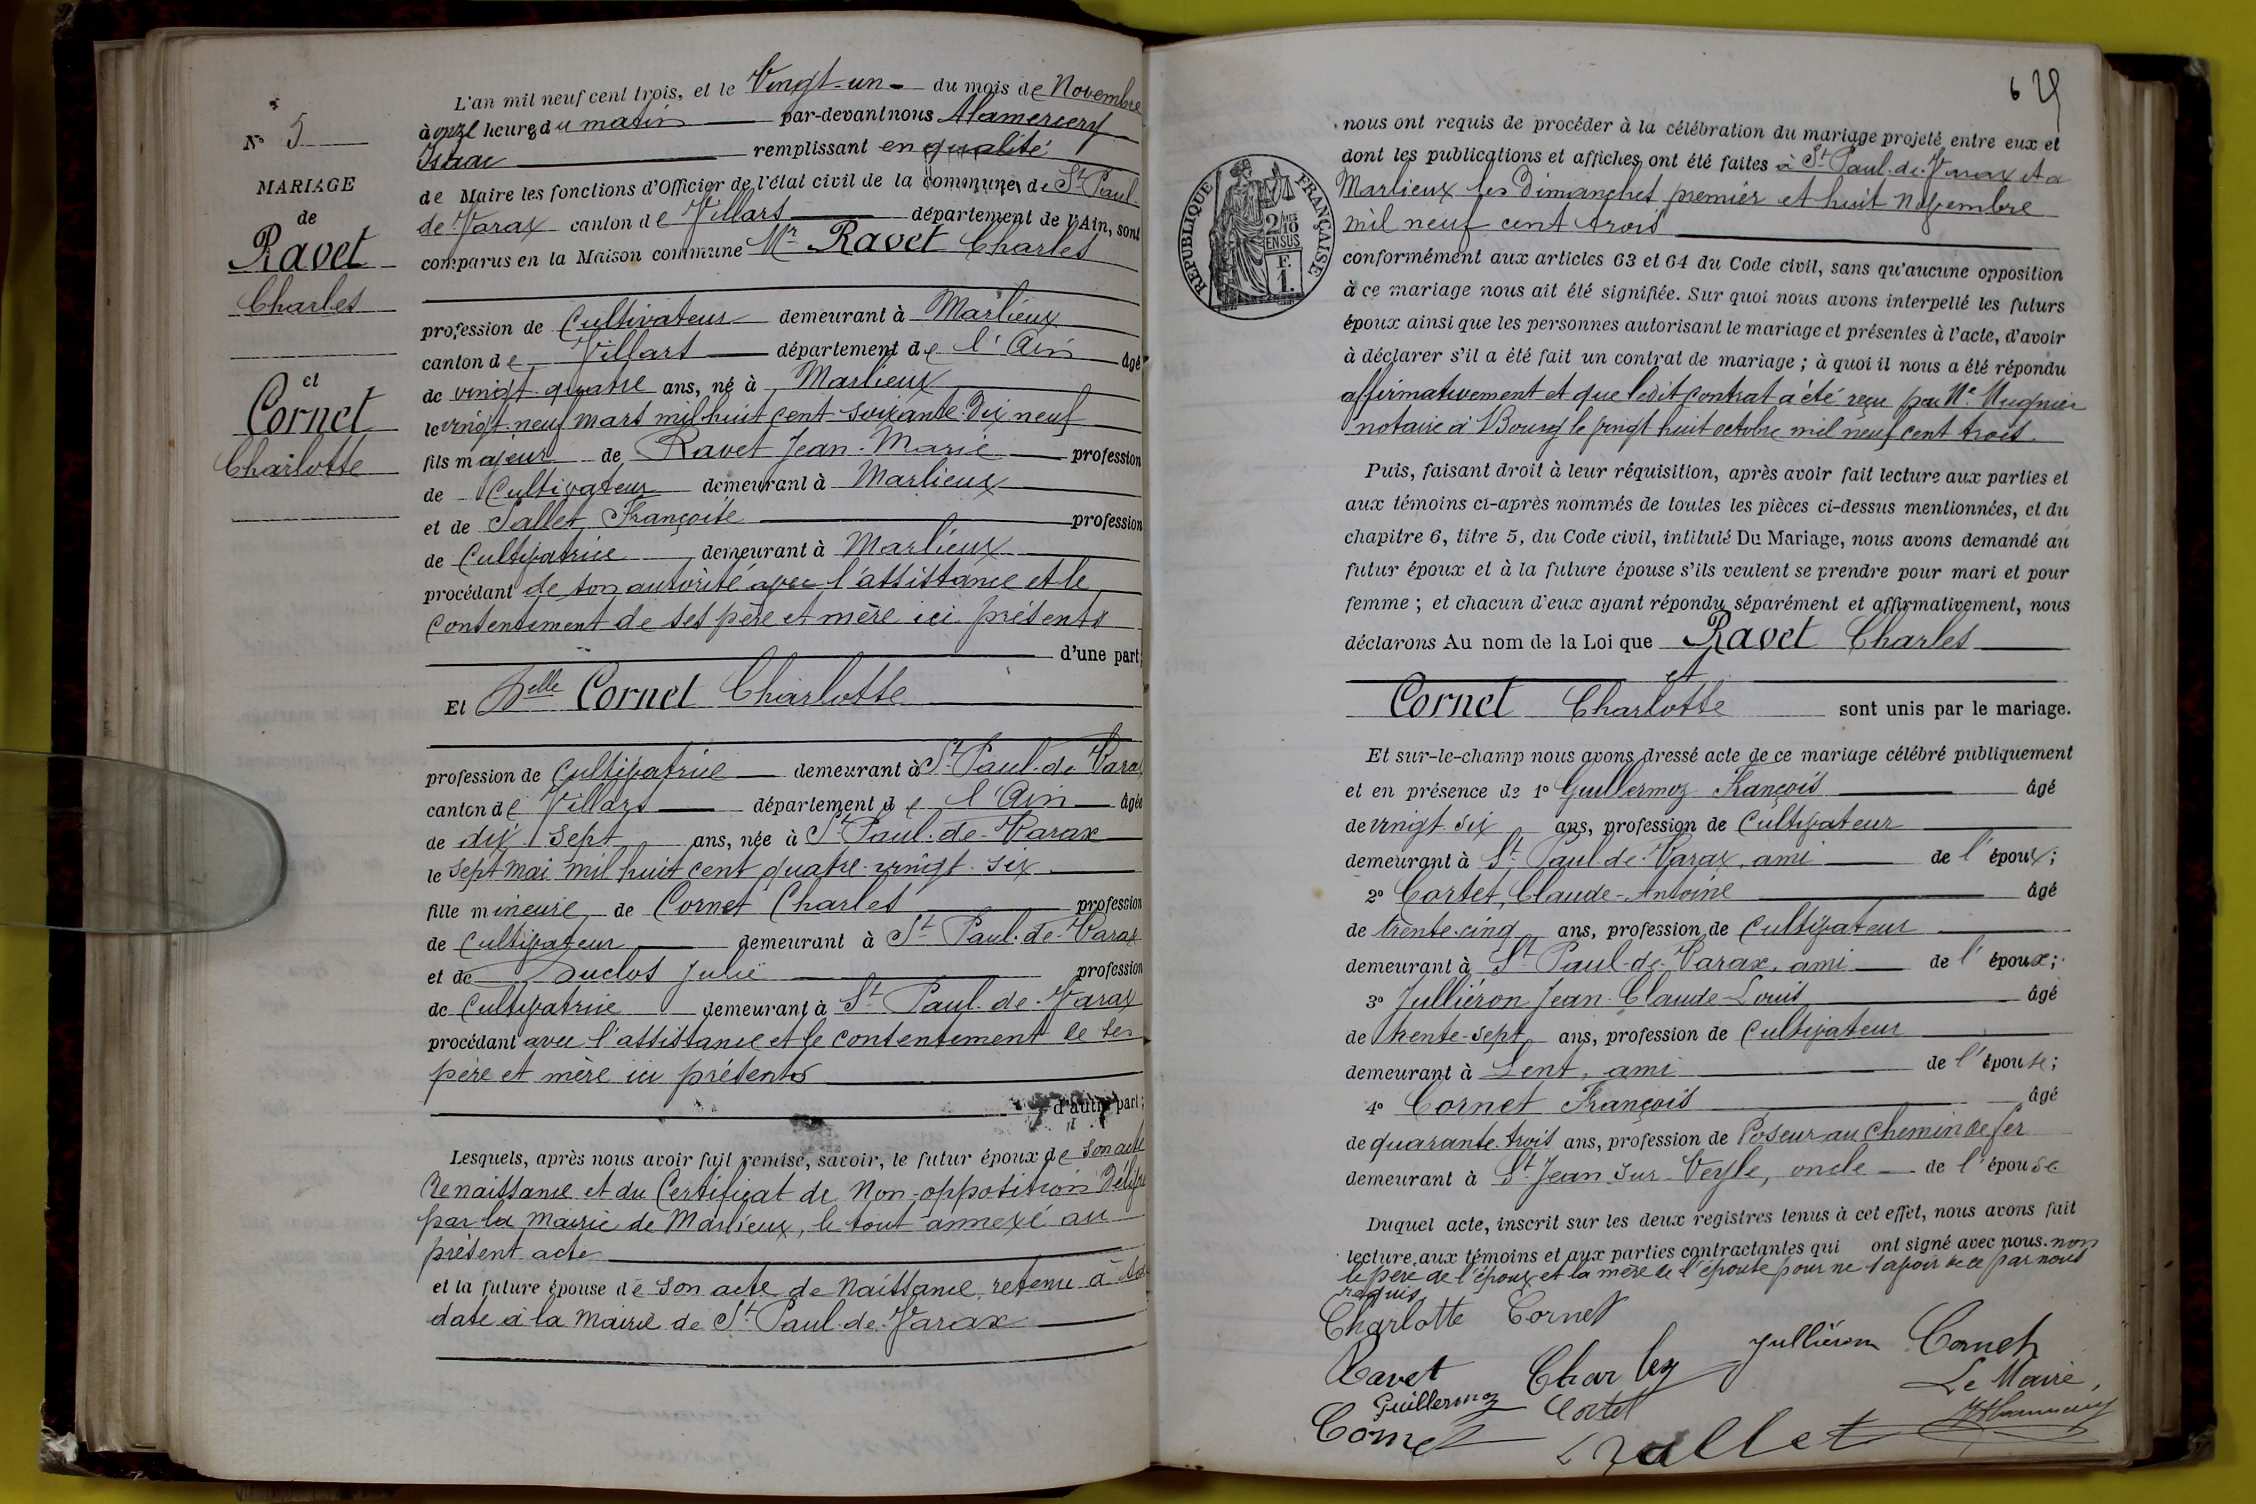 N° 5
MARIAGE
de
Ravet
Charles
et
Cornet
Charlotte
L'an mil neuf cent trois, et le Vingt-un du mois de Novembre
à onze heures du matin par-devant nous Alamercery
Isaac remplissant en qualité
de Maire les fonctions d'Officier de l'état civil de la commune de St Paul-
de Varax canton de Villars département de l'Ain, sont
comparus en la Maison commune Mr Ravet Charles
profession de Cultivateur demeurant à Marlieux
canton de Villars département de l'Ain âgé
de vingt-quatre ans, né à Marlieux
le vingt-neuf mars mil huit cent soixante-dix neuf
fils majeur de Ravet Jean-Marie profession
de Cultivateur demeurant à Marlieux
et de Pallet Françoise profession
de Cultivatrice demeurant à Marlieux
procédant de son autorité avec l'assistance et le
consentement de ses père et mère ici présents
d'une part;
Et Delle Cornet Charlotte
profession de Cultivatrice demeurant à St Paul-de-Varax
canton de Villars département de l'Ain âgée
de dix-sept ans, née à St Paul-de-Varax
le sept mai mil huit cent quatre-vingt-six
fille mineure de Cornet Charles profession
de Cultivateur demeurant à St Paul-de-Varax
et de Duclos Julie profession
de Cultivatrice demeurant à St Paul-de-Varax
procédant avec l'assistance et le consentement de ses
père et mère ici présents
d'autre part;
Lesquels, après nous avoir fait remise, savoir, le futur époux de son acte
de naissance et du Certificat de Non-opposition délivré
par la mairie de Marlieux, le tout annexé au
présent acte
et la future épouse de son acte de naissance retenu à sa
date à la mairie de St Paul-de-Varax
6
nous ont requis de procéder à la célébration du mariage projeté entre eux et
dont les publications et affiches ont été faites à St Paul-de-Varax et à
Marlieux les Dimanches premier et huit novembre
mil neuf cent trois
RÉPUBLIQUE FRANÇAISE
2/10
EN SUS
F.
1.
conformément aux articles 63 et 64 du Code civil, sans qu'aucune opposition
à ce mariage nous ait été signifiée. Sur quoi nous avons interpellé les futurs
époux ainsi que les personnes autorisant le mariage et présentes à l'acte, d'avoir
à déclarer s'il a été fait un contrat de mariage ; à quoi il nous a été répondu
affirmativement et que ledit contrat a été reçu par Me Mugnier
notaire à Bourg le vingt huit octobre mil neuf cent trois.
Puis, faisant droit à leur réquisition, après avoir fait lecture aux parties et
aux témoins ci-après nommés de toutes les pièces ci-dessus mentionnées, et du
chapitre 6, titre 5, du Code civil, intitulé Du Mariage, nous avons demandé au
futur époux et à la future épouse s'ils veulent se prendre pour mari et pour
femme ; et chacun d'eux ayant répondu séparément et affirmativement, nous
déclarons Au nom de la Loi que Ravet Charles
et
Cornet Charlotte sont unis par le mariage.
Et sur-le-champ nous avons dressé acte de ce mariage célébré publiquement
et en présence de 1° Guillermoz François âgé
de vingt-six ans, profession de Cultivateur
demeurant à St Paul-de-Varax, ami de l'époux;
2° Cortet, Claude-Antoine âgé
de trente-cinq ans, profession de Cultivateur
demeurant à St Paul-de-Varax, ami de l'époux;
3° Julliéron Jean-Claude-Louis âgé
de trente-sept ans, profession de Cultivateur
demeurant à Lent, ami de l'épouse;
4° Cornet François âgé
de quarante-trois ans, profession de Poseur au Chemin de fer
demeurant à St Jean-sur-Veyle, oncle de l'épouse
Duquel acte, inscrit sur les deux registres tenus à cet effet, nous avons fait
lecture aux témoins et aux parties contractantes qui ont signé avec nous. non
le père de l'époux et la mère de l'épouse pour ne savoir de ce par nous
requis
Charlotte Cornet
Ravet Charles Julliéron Cornet
Guillermoz Cortet Le Maire,
Cornet Pallet